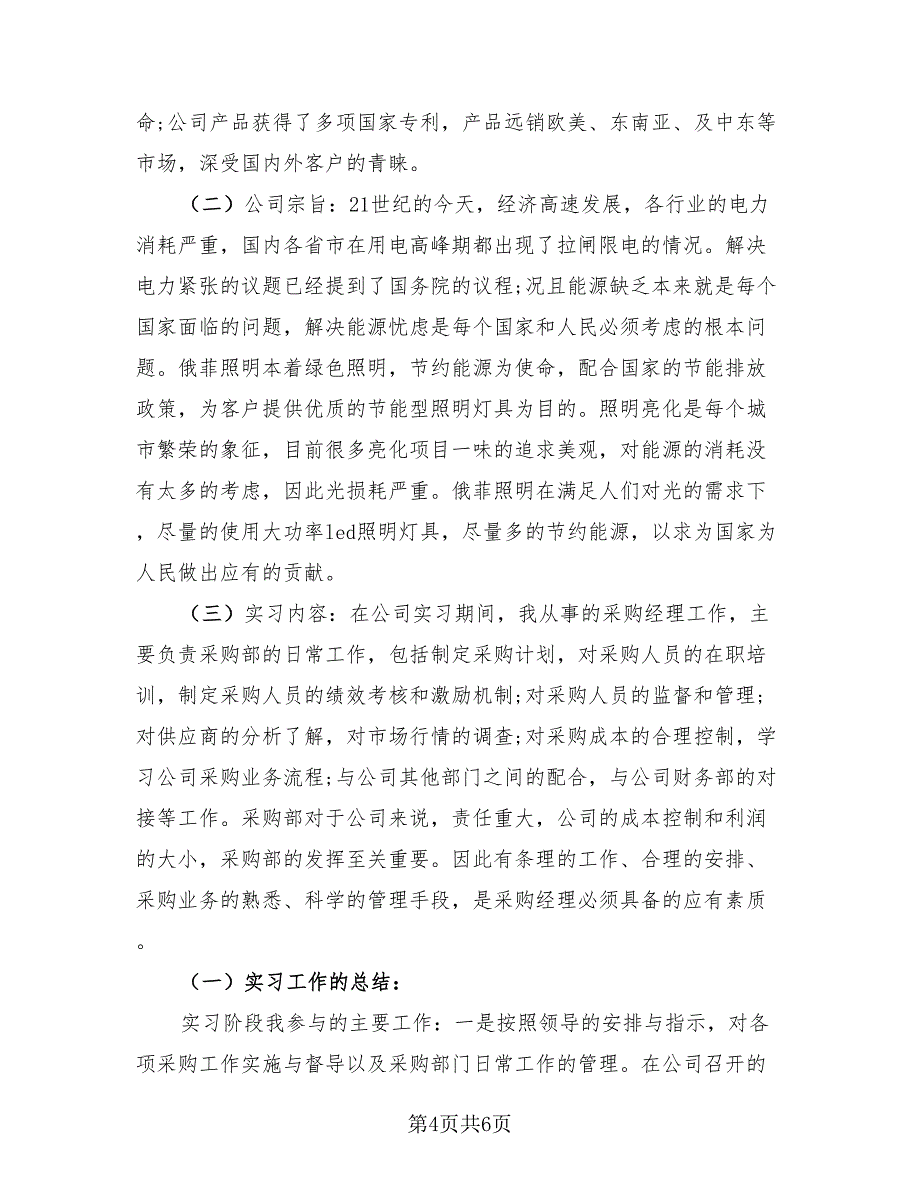 命;公司产品获得了多项国家专利，产品远销欧美、东南亚、及中东等
市场，深受国内外客户的青睐。
（二）公司宗旨：21世纪的今天，经济高速发展，各行业的电力
消耗严重，国内各省市在用电高峰期都出现了拉闸限电的情况。解决
电力紧张的议题已经提到了国务院的议程;况且能源缺乏本来就是每个
国家面临的问题，解决能源忧虑是每个国家和人民必须考虑的根本问
题。俄菲照明本着绿色照明，节约能源为使命，配合国家的节能排放
政策，为客户提供优质的节能型照明灯具为目的。照明亮化是每个城
市繁荣的象征，目前很多亮化项目一味的追求美观，对能源的消耗没
有太多的考虑，因此光损耗严重。俄菲照明在满足人们对光的需求下
，尽量的使用大功率led照明灯具，尽量多的节约能源，以求为国家为
人民做出应有的贡献。
（三）实习内容：在公司实习期间，我从事的采购经理工作，主
要负责采购部的日常工作，包括制定采购计划，对采购人员的在职培
训，制定采购人员的绩效考核和激励机制;对采购人员的监督和管理;
对供应商的分析了解，对市场行情的调查;对采购成本的合理控制，学
习公司采购业务流程;与公司其他部门之间的配合，与公司财务部的对
接等工作。采购部对于公司来说，责任重大，公司的成本控制和利润
的大小，采购部的发挥至关重要。因此有条理的工作、合理的安排、
采购业务的熟悉、科学的管理手段，是采购经理必须具备的应有素质
。
（一）实习工作的总结：
实习阶段我参与的主要工作：一是按照领导的安排与指示，对各
项采购工作实施与督导以及采购部门日常工作的管理。在公司召开的
第4页共6页